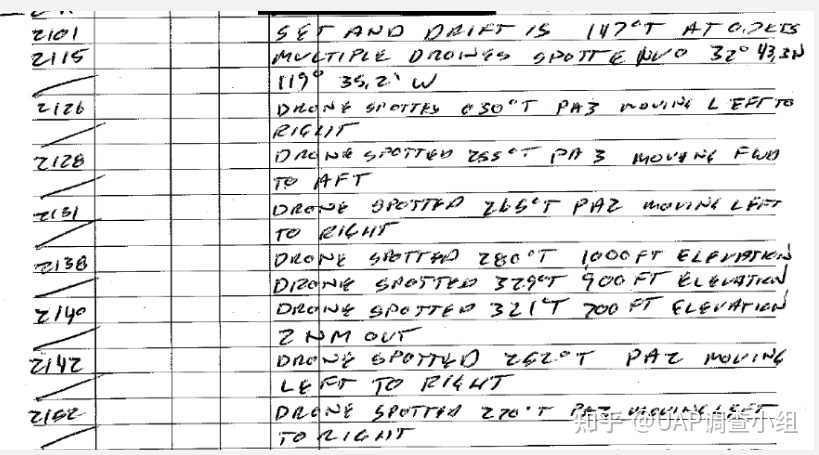 2101 SET AND DRIFT IS 147°T AT 0.7KTS
2115 MULTIPLE DRONES SPOTTE IVO 32° 43,3N
119° 35,2' W
2126 DRONE SPOTTED 030°T PA3 MOVING LEFT TO
RIGHT
2128 DRONE SPOTTED 255°T PA 3 MOVING FWD
TO AFT
2131 DRONE SPOTTED 265°T PA2 MOVING LEFT
TO RIGHT
2138 DRONE SPOTTED 280°T 1000 FT ELEVATION
DRONE SPOTTED 329°T 900 FT ELEVATION
2140 DRONE SPOTTED 321°T 700 FT ELEVATION
2 NM OUT
2142 DRONE SPOTTED 252°T PA2 MOVING
LEFT TO RIGHT
2152 DRONE SPOTTED 270°T PA2 MOVING LEFT
TO RIGHT
知乎 @UAP调查小组